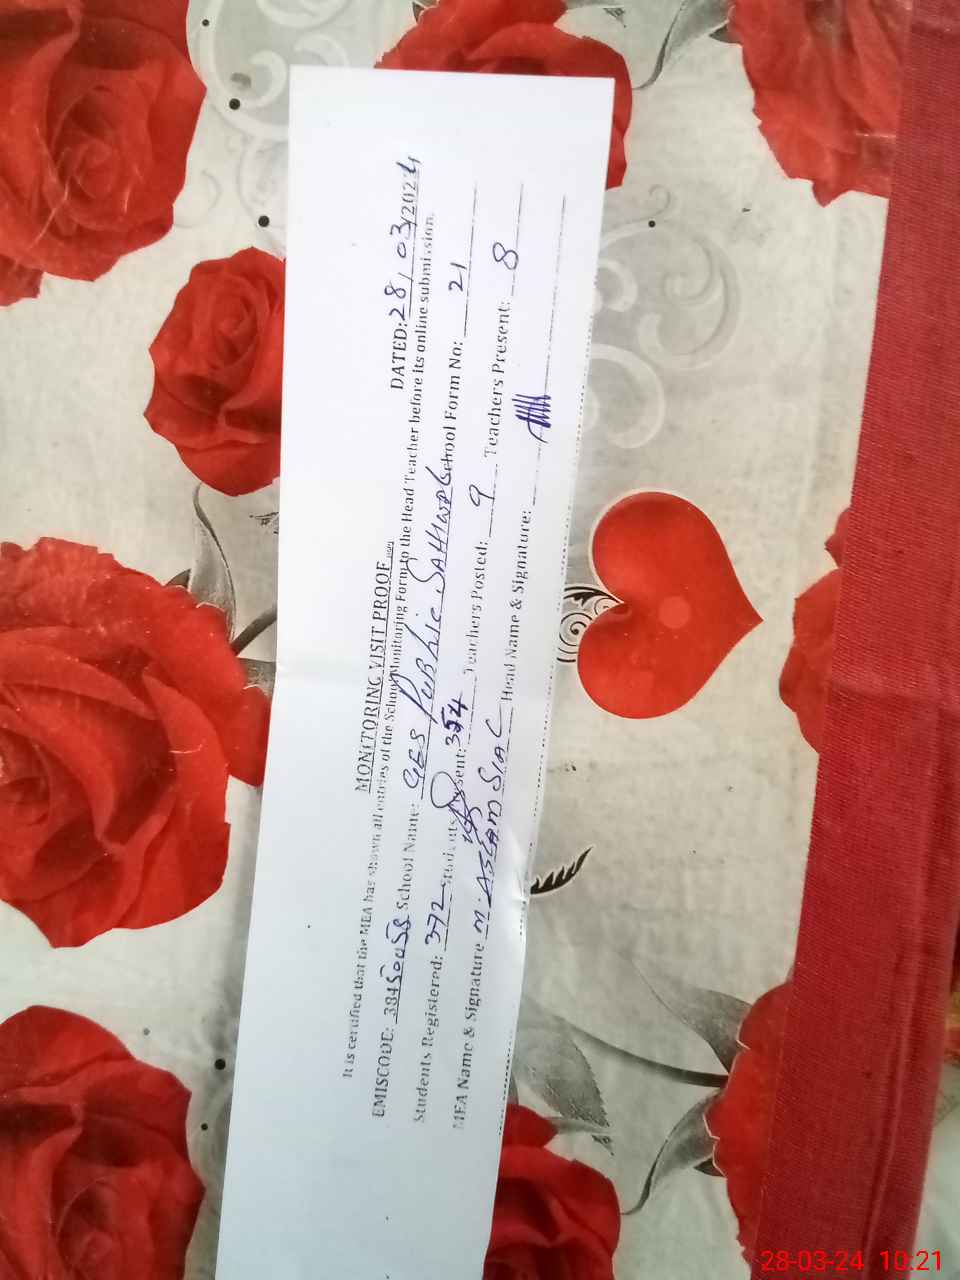 MONITORING VISIT PROOF
DATED: 28/03/2024
It is certified that the MEA has shown all entries of the School Monitoring Form to the Head Teacher before its online submission.
EMISCODE: School Name: GES PUBLIC SAHIWAL School Form No: 21
Students Registered: 372 Students Present: 354 Teachers Posted: 9 Teachers Present: 8
MEA Name & Signature M. ASLAM SIAL Head Name & Signature:
28-03-24 10:21